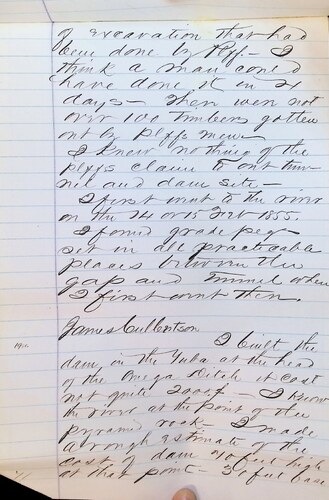 of excavation that had
been done by Plff - I
think a man could
have done it in 21
days - There were not
over 100 timbers gotten
out by plffs men -
I knew nothing of the
plffs claim to cut tun-
nel and dam site -
I first went to the river
on the 14 or 15 Feby 1855.
I found grade pegs
set in all practicable
places between the
gap and tunnel when
I first went there.
James Culbertson
I built the
dam in the Yuba at the head
of the Omega Ditch it cost
not quite 2000$ - I know
the river at the point of the
pyramid rock - I made
a rough estimate of the
cost of dam 40 feet high
at that point - 30 feet base